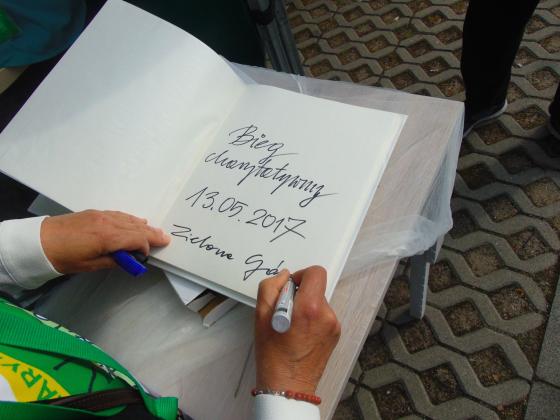 Bieg
charytatywny
13.05.2017
Zielona Gó
ARY